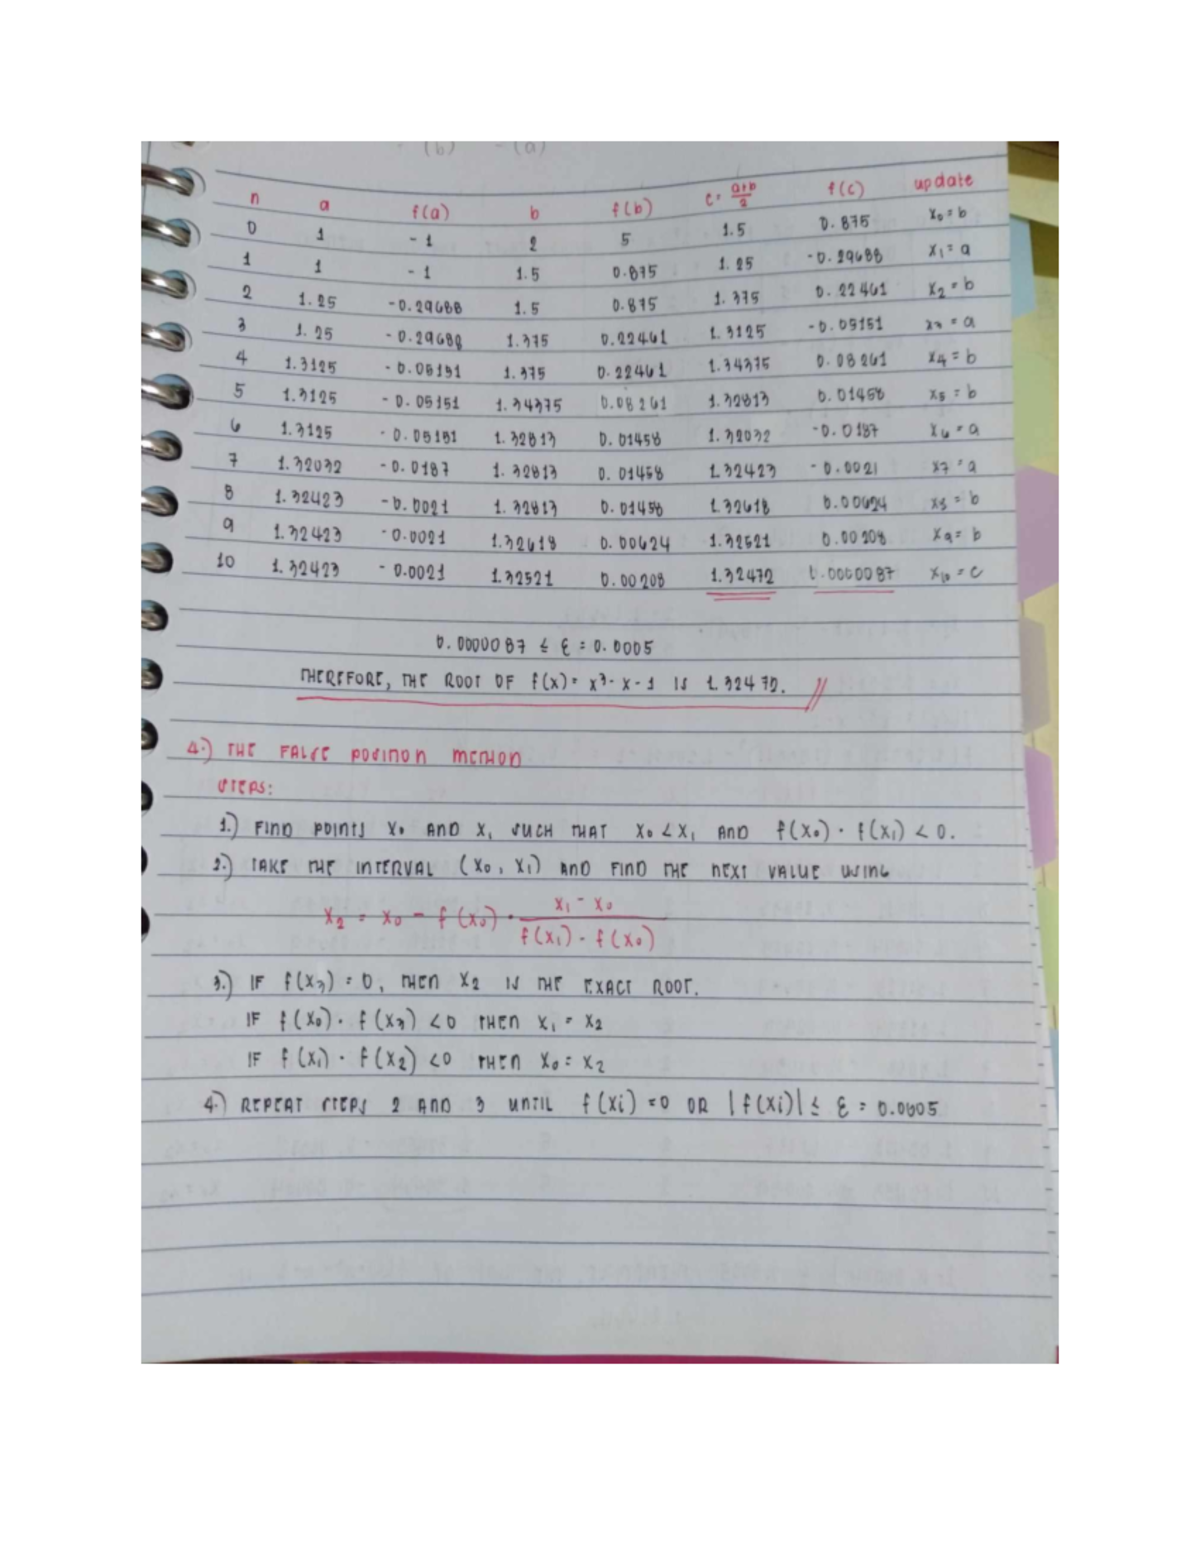 (b) - (a)
n a f(a) b f(b) c = a+b/2 f(c) update
0 1 -1 2 5 1.5 0.875 x₀ = b
1 1 -1 1.5 0.875 1.25 -0.29688 x₁ = a
2 1.25 -0.29688 1.5 0.875 1.375 0.22461 x₂ = b
3 1.25 -0.29688 1.375 0.22461 1.3125 -0.05151 x₃ = a
4 1.3125 -0.05151 1.375 0.22461 1.34375 0.08261 x₄ = b
5 1.3125 -0.05151 1.34375 0.08261 1.32813 0.01458 x₅ = b
6 1.3125 -0.05151 1.32813 0.01458 1.32032 -0.0187 x₆ = a
7 1.32032 -0.0187 1.32813 0.01458 1.32423 -0.0021 x₇ = a
8 1.32423 -0.0021 1.32813 0.01458 1.32618 0.00624 x₈ = b
9 1.32423 -0.0021 1.32618 0.00624 1.32521 0.00208 x₉ = b
10 1.32423 -0.0021 1.32521 0.00208 1.32472 0.0000087 x₁₀ = c
0.0000087 ≤ ε = 0.0005
THEREFORE, THE ROOT OF f(x) = x³ - x - 1 IS 1.32472.
4.) THE FALSE POSITION METHOD
STEPS:
1.) FIND POINTS X₀ AND X₁ SUCH THAT X₀ < X₁ AND f(X₀) · f(X₁) < 0.
2.) TAKE THE INTERVAL (X₀, X₁) AND FIND THE NEXT VALUE USING
X₂ = X₀ - f(X₀) · X₁ - X₀ / f(X₁) - f(X₀)
3.) IF f(X₂) = 0, THEN X₂ IS THE EXACT ROOT.
IF f(X₀) · f(X₂) < 0 THEN X₁ = X₂
IF f(X₁) · f(X₂) < 0 THEN X₀ = X₂
4.) REPEAT STEPS 2 AND 3 UNTIL f(Xi) = 0 OR |f(Xi)| ≤ ε = 0.0005